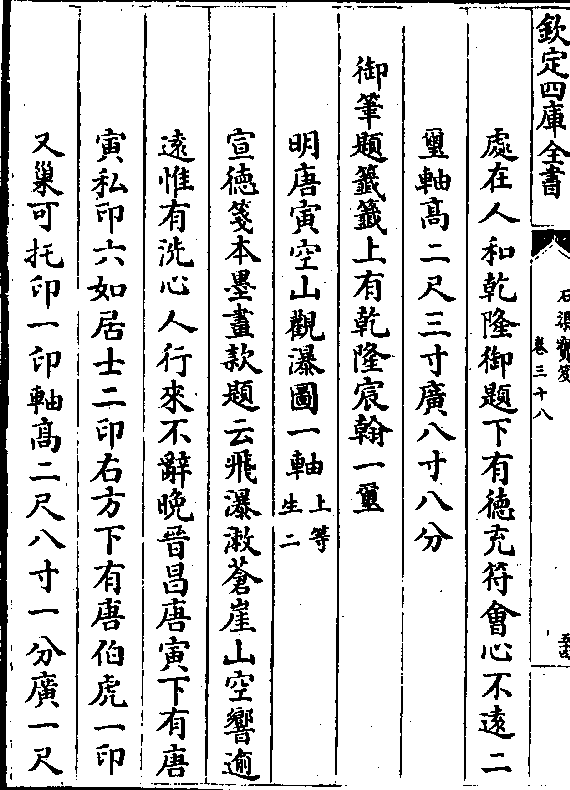 欽定四庫全書
石渠寶笈
卷三十八
處在人和乾隆御題下有德充符會心不遠二
璽軸高二尺三寸廣八寸八分
御筆題籤籤上有乾隆宸翰一璽
明唐寅空山觀瀑圖一軸上等
生二
宣德箋本墨畫款題云飛瀑漱蒼崖山空響逾
遠惟有洗心人行來不辭晚晉昌唐寅下有唐
寅私印六如居士二印右方下有唐伯虎一印
又巢可托印一印軸高二尺八寸一分廣一尺